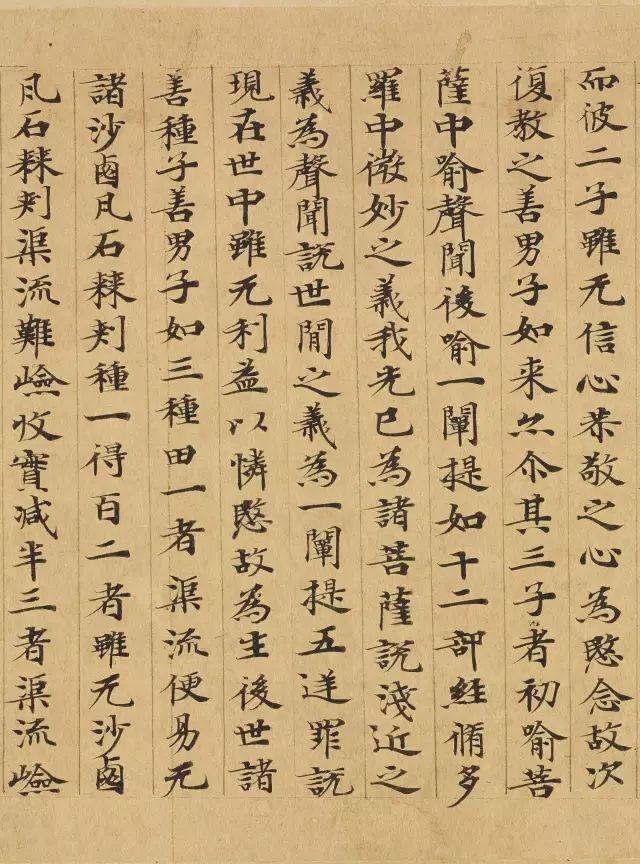 而彼二子雖无信心恭敬之心為愍念故次
復教之善男子如来亦尒其三子者初喻菩
薩中喻聲聞後喻一闡提如十二部經脩多
羅中微妙之義我先已為諸菩薩說淺近之
義為聲聞說世間之義為一闡提五逆罪說
現在世中雖无利益以憐愍故為生後世諸
善種子善男子如三種田一者渠流便易无
諸沙鹵瓦石棘刾種一得百二者雖无沙鹵
瓦石棘刾渠流難嶮收實減半三者渠流嶮